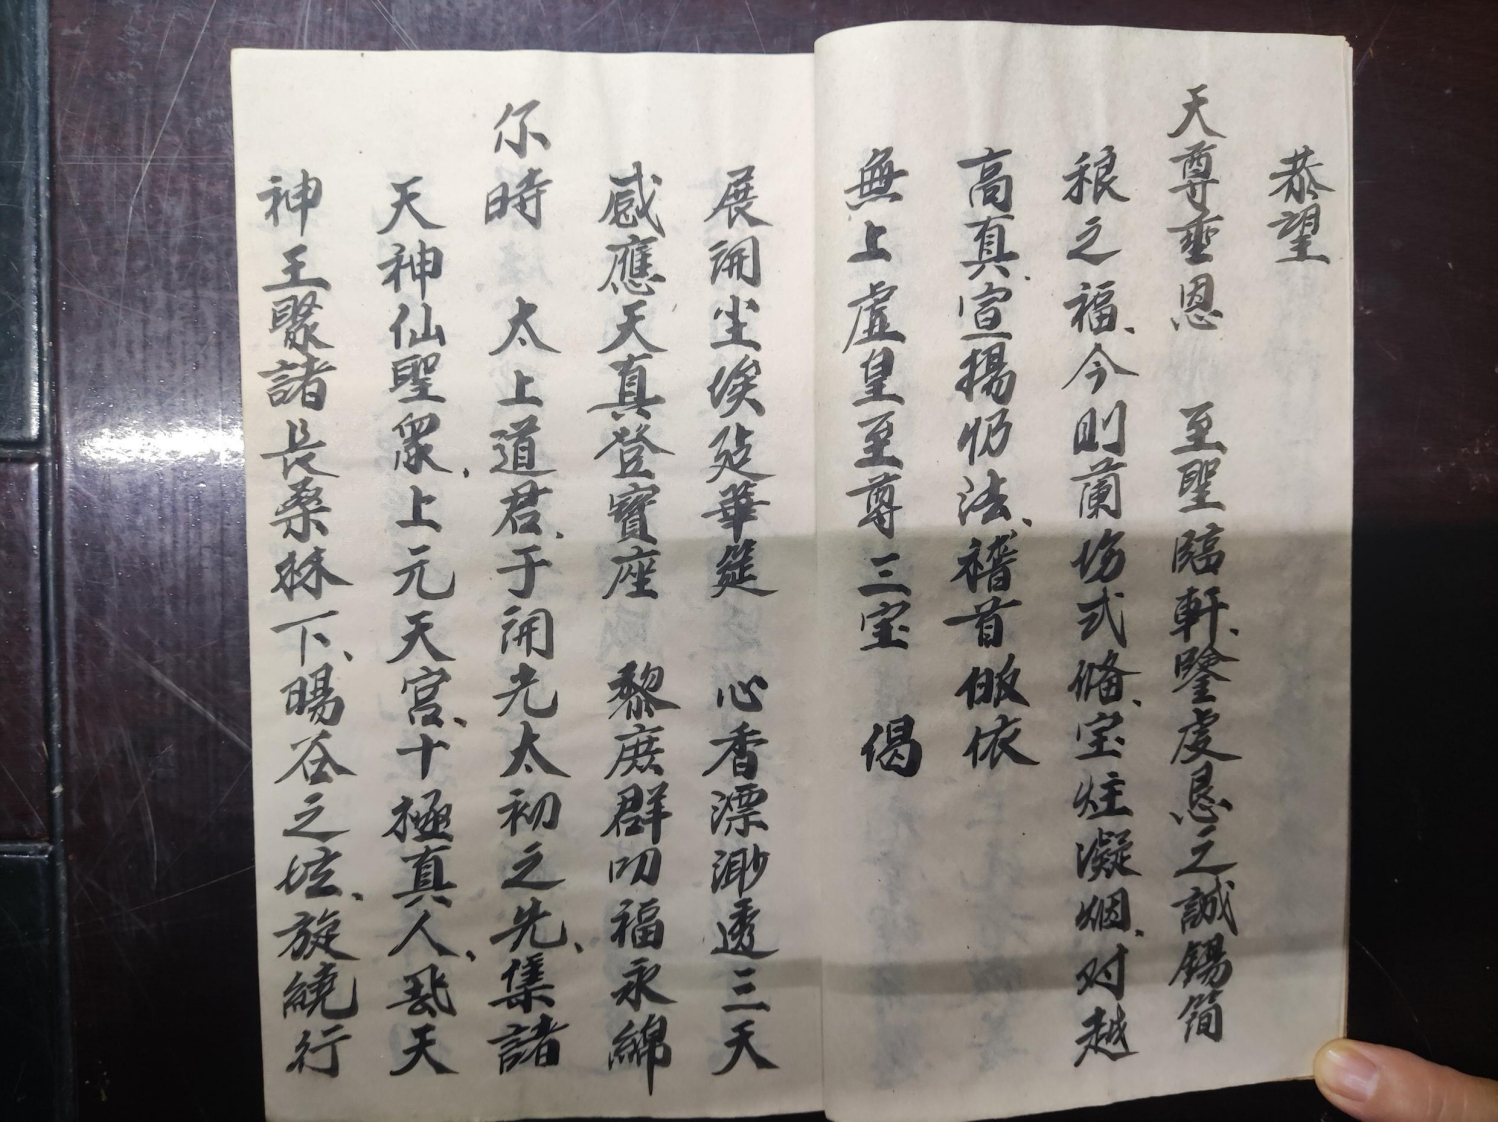 恭望
天尊垂恩 至聖臨軒、鑒虔恳之誠錫簡
穰之福、今則蘭场式俻、宝炷凝烟、对越
高真、宣揚仍法、稽首皈依
無上虛皇至尊三宝 偈
展開尘埃廷華筵 心香漂渺透三天
感應天真登寶座 黎庶群叨福永綿
尓時 太上道君、于開光太初之先、集諸
天神仙聖衆、上元天宫、十極真人、飛天
神王聚諸長桑林下、暘谷之垅、旋繞行